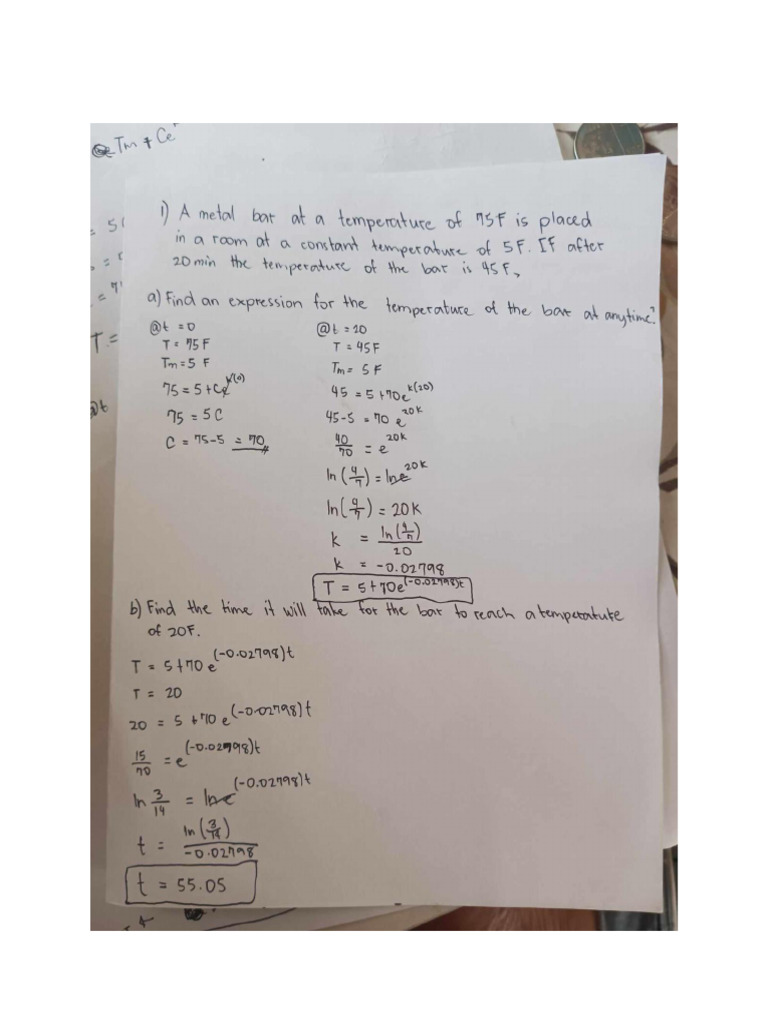 Tm + Ce
1) A metal bar at a temperature of 75F is placed
in a room at a constant temperature of 5F. If after
20min the temperature of the bar is 45F,
a) Find an expression for the temperature of the bar at anytime?
@t = 0
T = 75F
Tm = 5 F
75 = 5 + Ce^k(0)
75 = 5C
C = 75-5 = 70
@t = 20
T = 45F
Tm = 5F
45 = 5 + 70e^k(20)
45-5 = 70 e^20k
40/70 = e^20k
ln (4/7) = lne^20k
ln (4/7) = 20k
k = ln(4/7)/20
k = -0.02798
T = 5+70e^(-0.02798)t
b) Find the time it will take for the bar to reach a temperature
of 20F.
T = 5+70 e^(-0.02798)t
T = 20
20 = 5 + 70 e^(-0.02798)t
15/70 = e^(-0.02798)t
ln 3/14 = lne^(-0.02798)t
t = ln(3/14)/-0.02798
t = 55.05